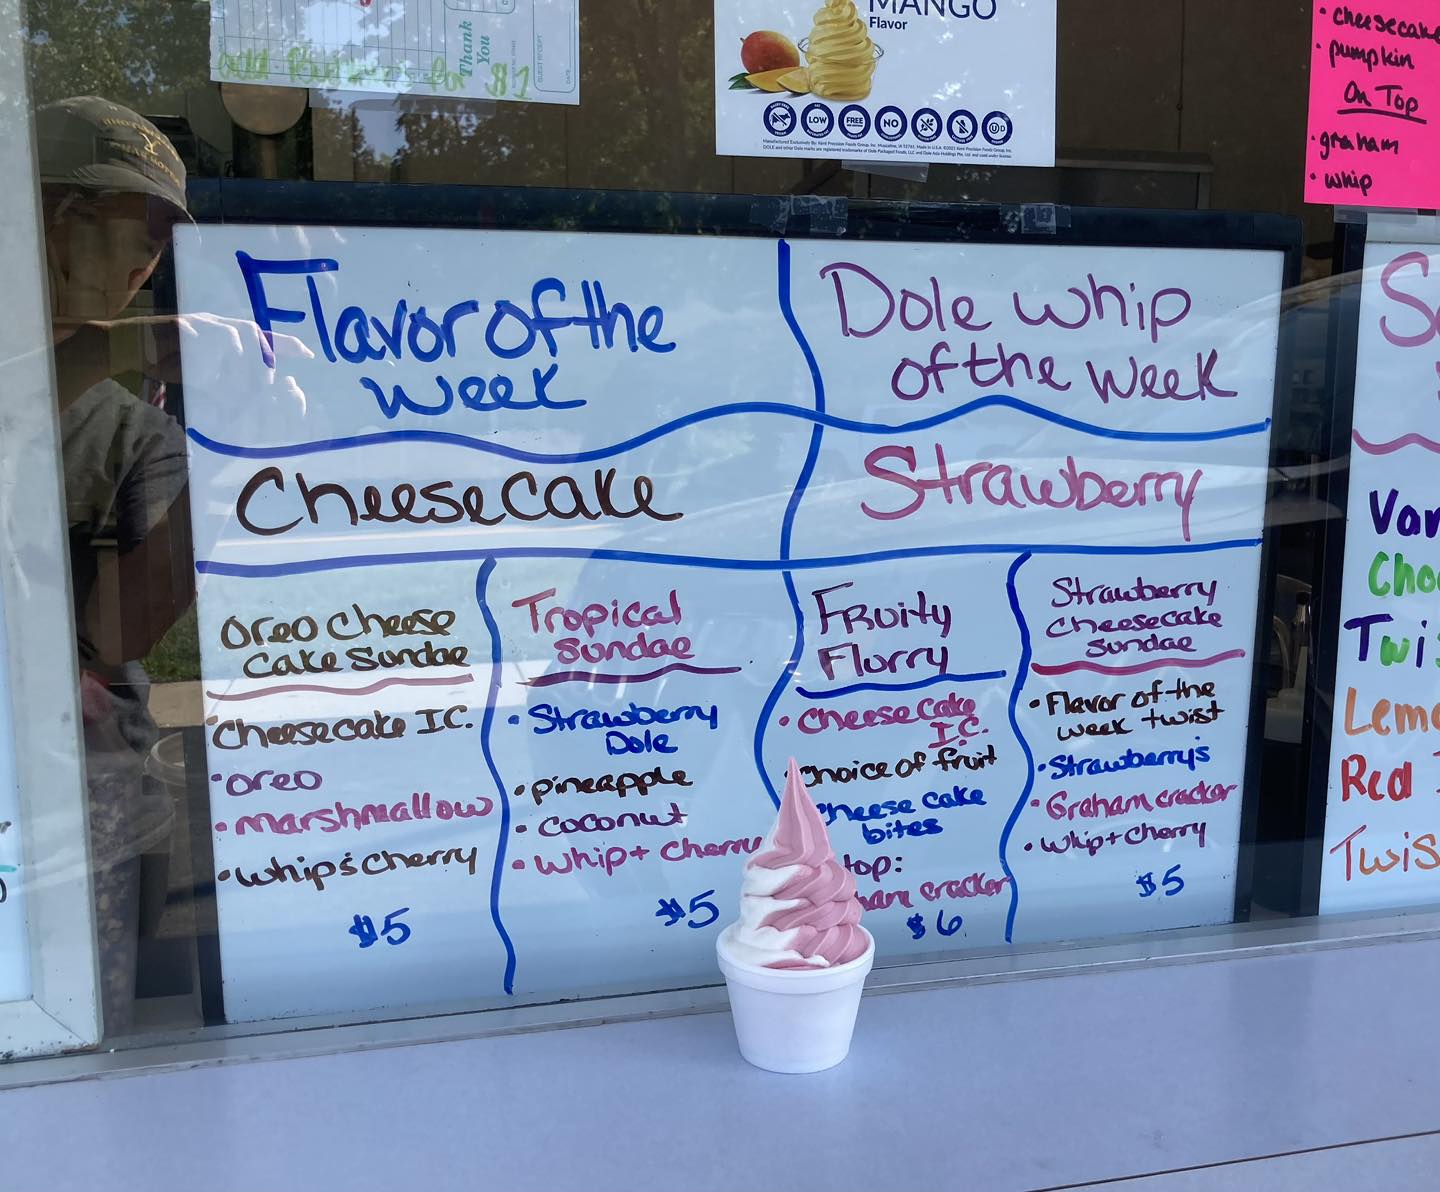 Thank You
GUEST RECEIPT
DATE
add
for $1
MANGO
Flavor
LOW
FREE
NO
Manufactured Exclusively By: Kent Precision Foods Group, Inc.
• cheesecake
• pumpkin
On Top
• graham
• whip
Flavor of the
week
Dole whip
of the week
Cheesecake
Strawberry
Oreo Cheese
cake Sundae
• Cheesecake I.C.
• oreo
• marshmallow
• whip & cherry
$5
Tropical
Sundae
• Strawberry
Dole
• pineapple
• coconut
• whip + cherry
$5
Fruity
Flurry
• Cheesecake
I.C.
• Choice of fruit
Cheese cake
bites
top:
ham cracker
$6
Strawberry
Cheesecake
Sundae
• Flavor of the
week twist
• Strawberry's
• Graham cracker
• Whip + cherry
$5
Van
Cho
Twis
Lemo
Red
Twis